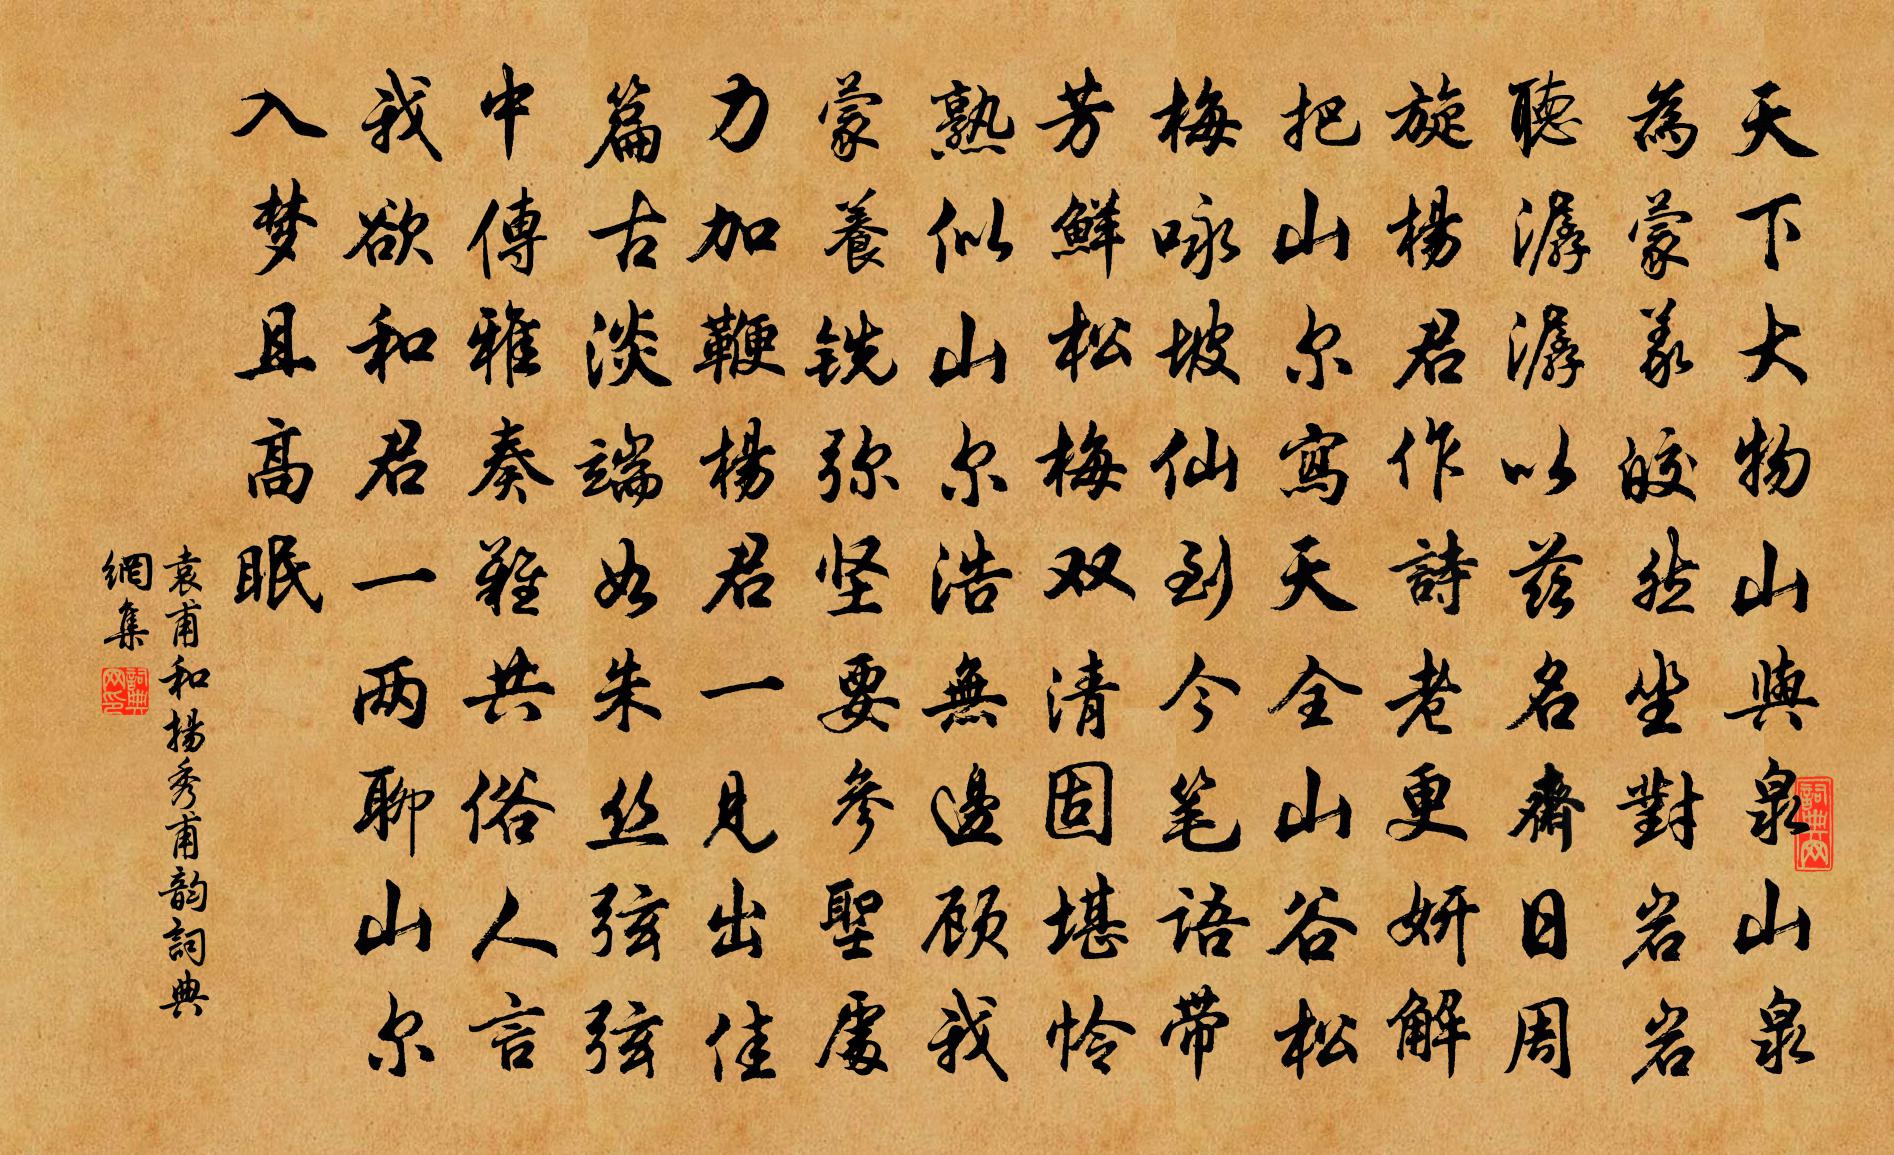 天下大物山與泉山泉
為蒙義皎然坐對岩岩
聽潺潺以兹名齋日周
旋楊君作詩老更妍解
把山尔寫天全山谷松
梅咏坡仙到今笔语带
芳鮮松梅双清固堪怜
熟似山尔浩無邊顾我
蒙養銑弥坚要參聖處
力加鞭楊君一見出佳
篇古淡端如朱丝弦弦
中傳雅奏難共俗人言
我欲和君一两聊山尔
入梦且高眠
袁甫和揚秀甫韵詞典
網集
詞典网
詞典网印